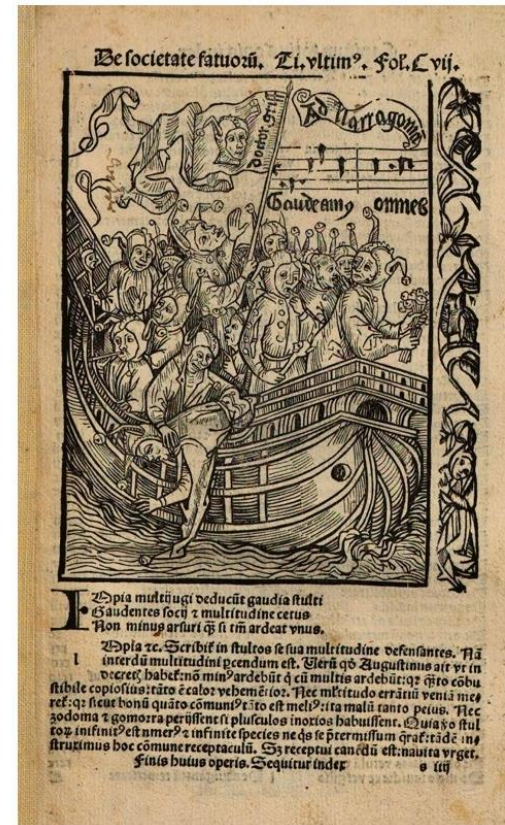 De societate fatuorū. Ti. vltimꝰ. Fol. C vij.
Ad Narragoniā
doctor griff
Gaudeamꝰ omnes
Opia multijugi deducūt gaudia stulti
Gaudentes socij ⁊ multitudine cetus
Non minus arsuri q̄ si tm̄ ardeat vnus.
Opia ⁊c. Scribit̄ in stultos se sua multitudine defensantes. Nā
l interdū multitudini ꝑcendum est. Uerū qd̄ Augustinus ait vt in
decretꝭ habet̄: nō minꝰ ardebūt q̄ cū multis ardebūt: qꝛ q̄ȝto cōbu
stibile copiosius: tāto ē calor vehemētior. Nec ml̄titudo errātiū veniā me
ret̄: qꝛ sicut bonū quāto cōmuniꝰ tāto est meliꝰ: ita malū tanto peius. Nec
zodoma ⁊ gomorra perijssent si plusculos inoxios habuissent. Quia ꝟo stul
toꝝ infinitꝰ est numerꝰ ⁊ infinite species ne qͥs se p̄termissum q̄rat̄: tādē in
struximus hoc cōmune receptaculū. Sȝ receptui canēdū est: nauita vrget.
Finis huius operis. Sequitur index
s iij